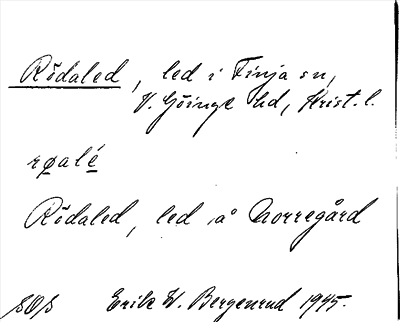 Rödaled, led i Finja sn,
V. Göinge hd, Krist. l.
røalé
Rödaled, led å Norregård
SOS Erik W. Bergenrud 1945.